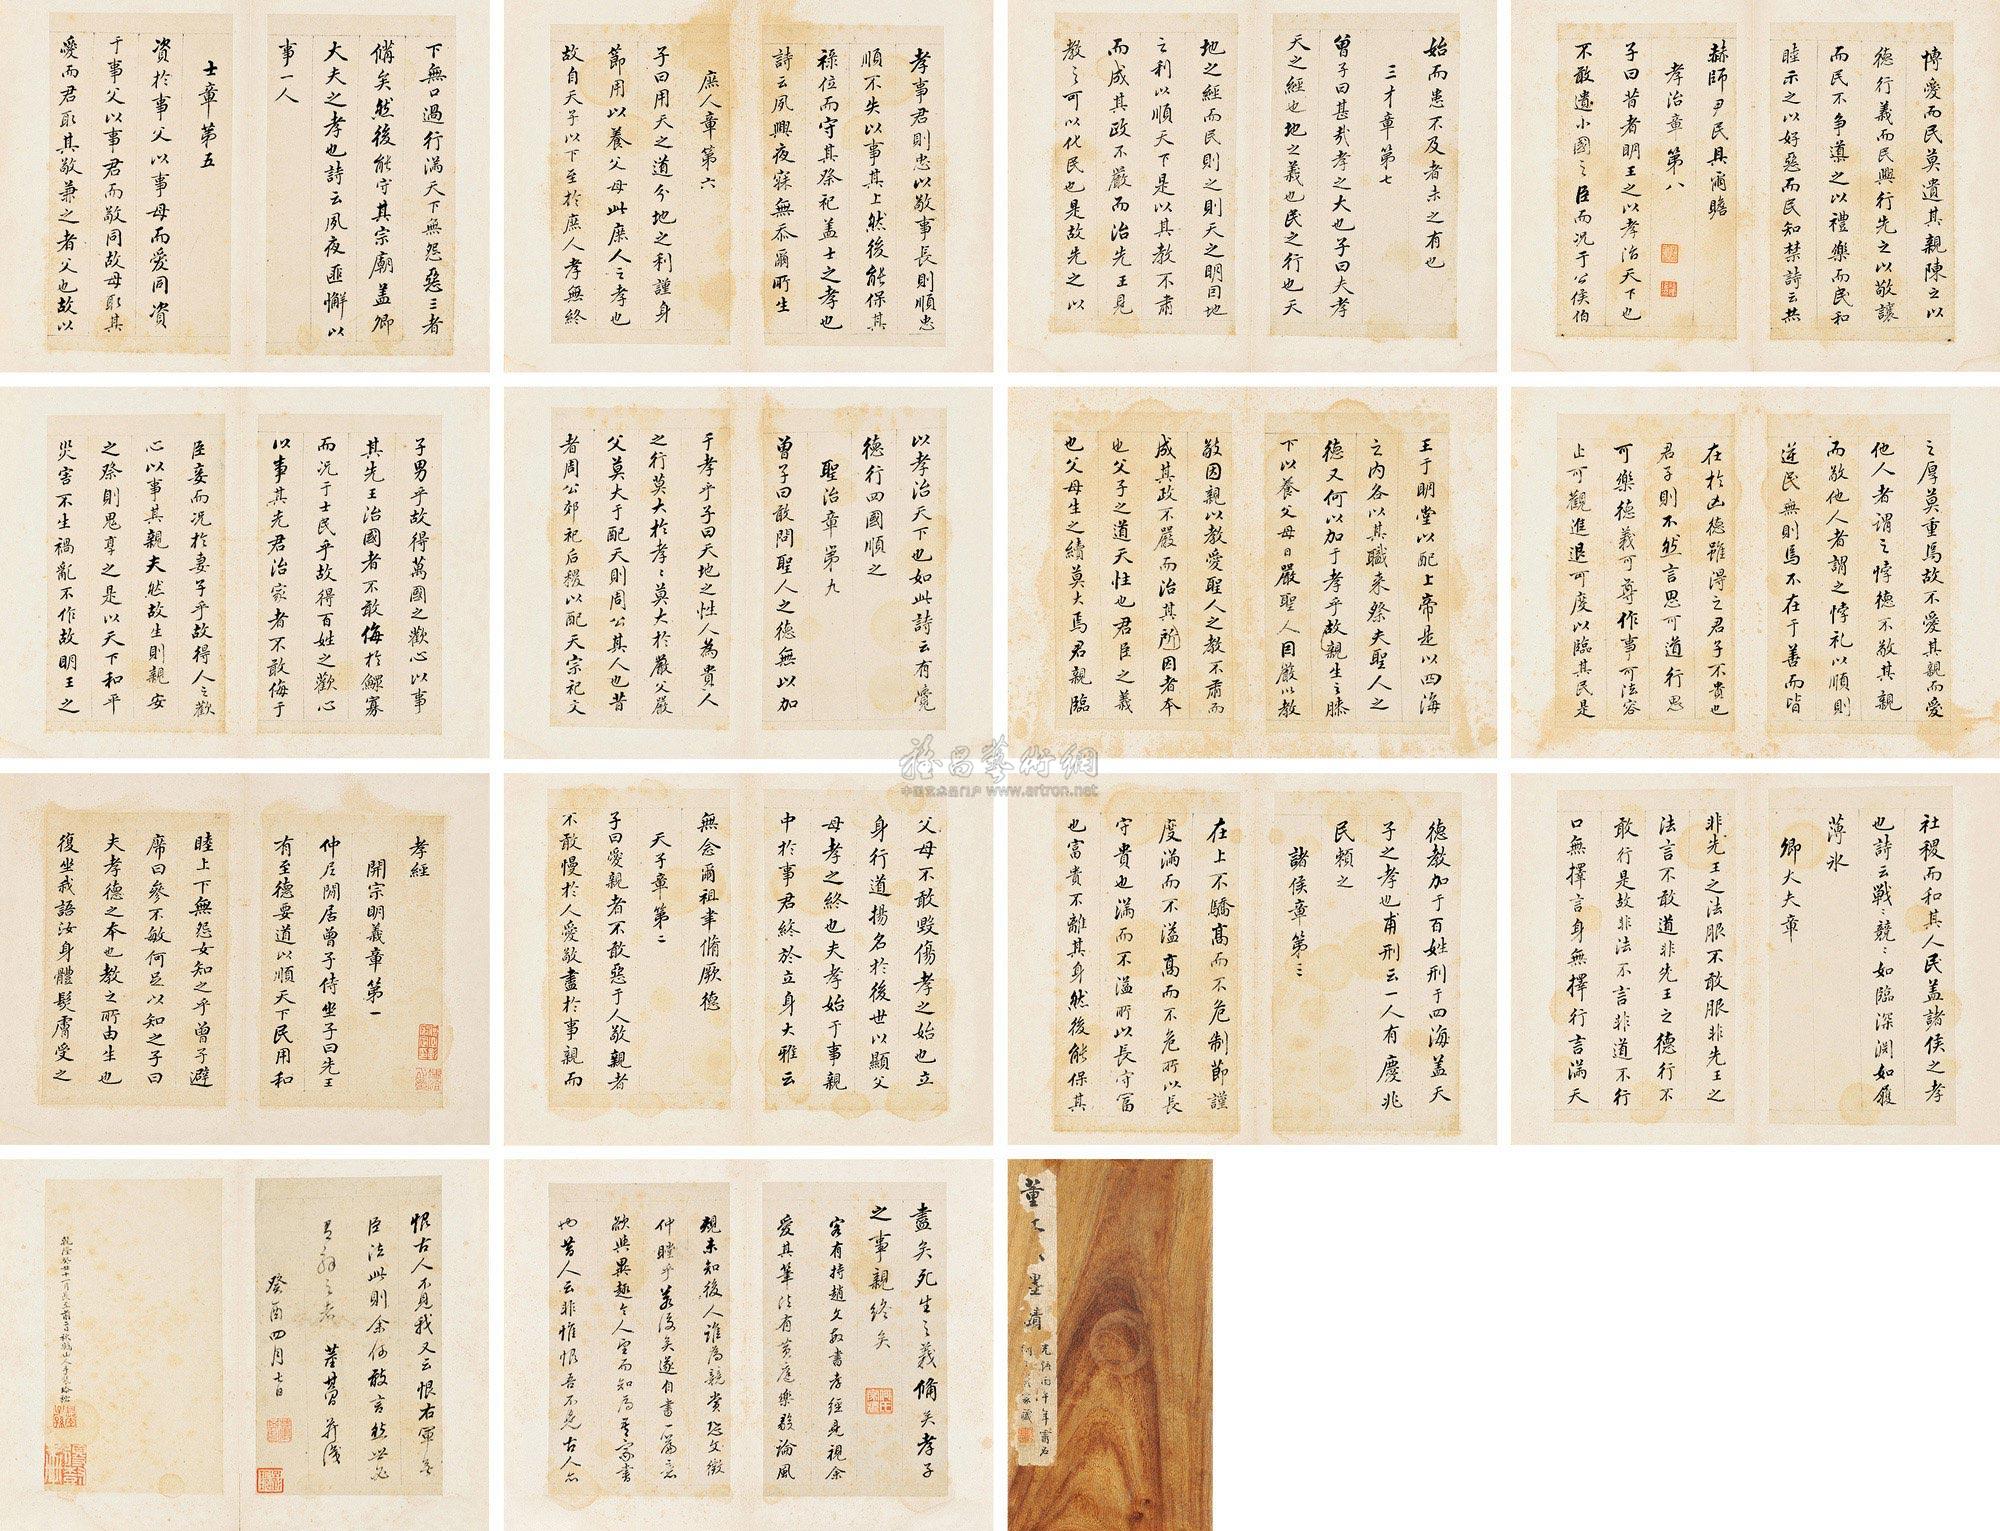 孝經
開宗明義章第一
仲尼閒居曾子侍坐子曰先王
有至德要道以順天下民用和
睦上下無怨女知之乎曾子避
席曰參不敏何足以知之子曰
夫孝德之本也教之所由生也
復坐我語汝身體髮膚受之
父母不敢毀傷孝之始也立
身行道揚名於後世以顯父
母孝之終也夫孝始于事親
中於事君終於立身大雅云
無念爾祖聿脩厥德
天子章第二
子曰愛親者不敢惡于人敬親者
不敢慢於人愛敬盡於事親而
德教加于百姓刑于四海蓋天
子之孝也甫刑云一人有慶兆
民賴之
諸侯章第三
在上不驕高而不危制節謹
度滿而不溢高而不危所以長
守貴也滿而不溢所以長守富
也富貴不離其身然後能保其
社稷而和其人民蓋諸侯之孝
也詩云戰〻兢〻如臨深淵如履
薄冰
卿大夫章
非先王之法服不敢服非先王之
法言不敢道非先王之德行不
敢行是故非法不言非道不行
口無擇言身無擇行言滿天
下無口過行滿天下無怨惡三者
備矣然後能守其宗廟蓋卿
大夫之孝也詩云夙夜匪懈以
事一人
士章第五
資於事父以事母而愛同資
于事父以事君而敬同故母取其
愛而君取其敬兼之者父也故以
孝事君則忠以敬事長則順忠
順不失以事其上然後能保其
祿位而守其祭祀蓋士之孝也
詩云夙興夜寐無忝爾所生
庶人章第六
子曰用天之道分地之利謹身
節用以養父母此庶人之孝也
故自天子以下至於庶人孝無終
始而患不及者未之有也
三才章第七
曾子曰甚哉孝之大也子曰夫孝
天之經也地之義也民之行也天
地之經而民則之則天之明因地
之利以順天下是以其教不肅
而成其政不嚴而治先王見
教之可以化民也是故先之以
博愛而民莫遺其親陳之以
德行義而民興行先之以敬讓
而民不爭導之以禮樂而民和
睦示之以好惡而民知禁詩云赫
赫師尹民具爾瞻
孝治章第八
子曰昔者明王之以孝治天下也
不敢遺小國之臣而況于公侯伯
子男乎故得萬國之歡心以事
其先王治國者不敢侮於鰥寡
而況于士民乎故得百姓之歡心
以事其先君治家者不敢侮于
臣妾而況於妻子乎故得人之歡
心以事其親夫然故生則親安
之祭則鬼享之是以天下和平
災害不生禍亂不作故明王之
以孝治天下也如此詩云有覺
德行四國順之
聖治章第九
曾子曰敢問聖人之德無以加
于孝乎子曰天地之性人為貴人
之行莫大於孝〻莫大於嚴父嚴
父莫大于配天則周公其人也昔
者周公郊祀后稷以配天宗祀文
王于明堂以配上帝是以四海
之內各以其職來祭夫聖人之
德又何以加于孝乎故親生之膝
下以養父母日嚴聖人因嚴以教
敬因親以教愛聖人之教不肅而
成其政不嚴而治其所因者本
也父子之道天性也君臣之義
也父母生之續莫大焉君親臨
之厚莫重焉故不愛其親而愛
他人者謂之悖德不敬其親
而敬他人者謂之悖礼以順則
逆民無則焉不在于善而皆
在於凶德雖得之君子不貴也
君子則不然言思可道行思
可樂德義可尊作事可法容
止可觀進退可度以臨其民是
盡矣死生之義備矣孝子
之事親終矣
客有持趙文敏書孝經見視余
愛其筆法有黃庭樂毅論風
規未知後人誰為競賞恐文徵
仲瞠乎若後矣遂自書一篇意
欲與異趣令人望而知為吾家書
也昔人云非惟恨吾不見古人亦
恨古人不見我又云恨右軍無
臣法此則余何敢言然世必
有解之者 董其昌并識
癸酉四月七日
乾隆癸丑十一月長至前二日秋鶴山人手裝
董文公墨蹟
雅昌藝術網
中国艺术品门户 www.artron.net